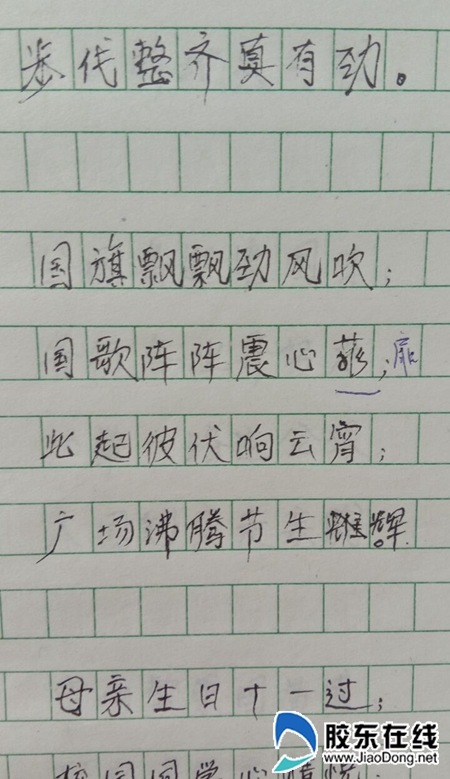 步代整齐真有劲。
国旗飘飘劲风吹;
国歌阵阵震心菲;扉
此起彼伏响云宵;
广场沸腾节生辉。
母亲生日十一过;
校园同学心情悦
胶东在线
www.JiaoDong.net